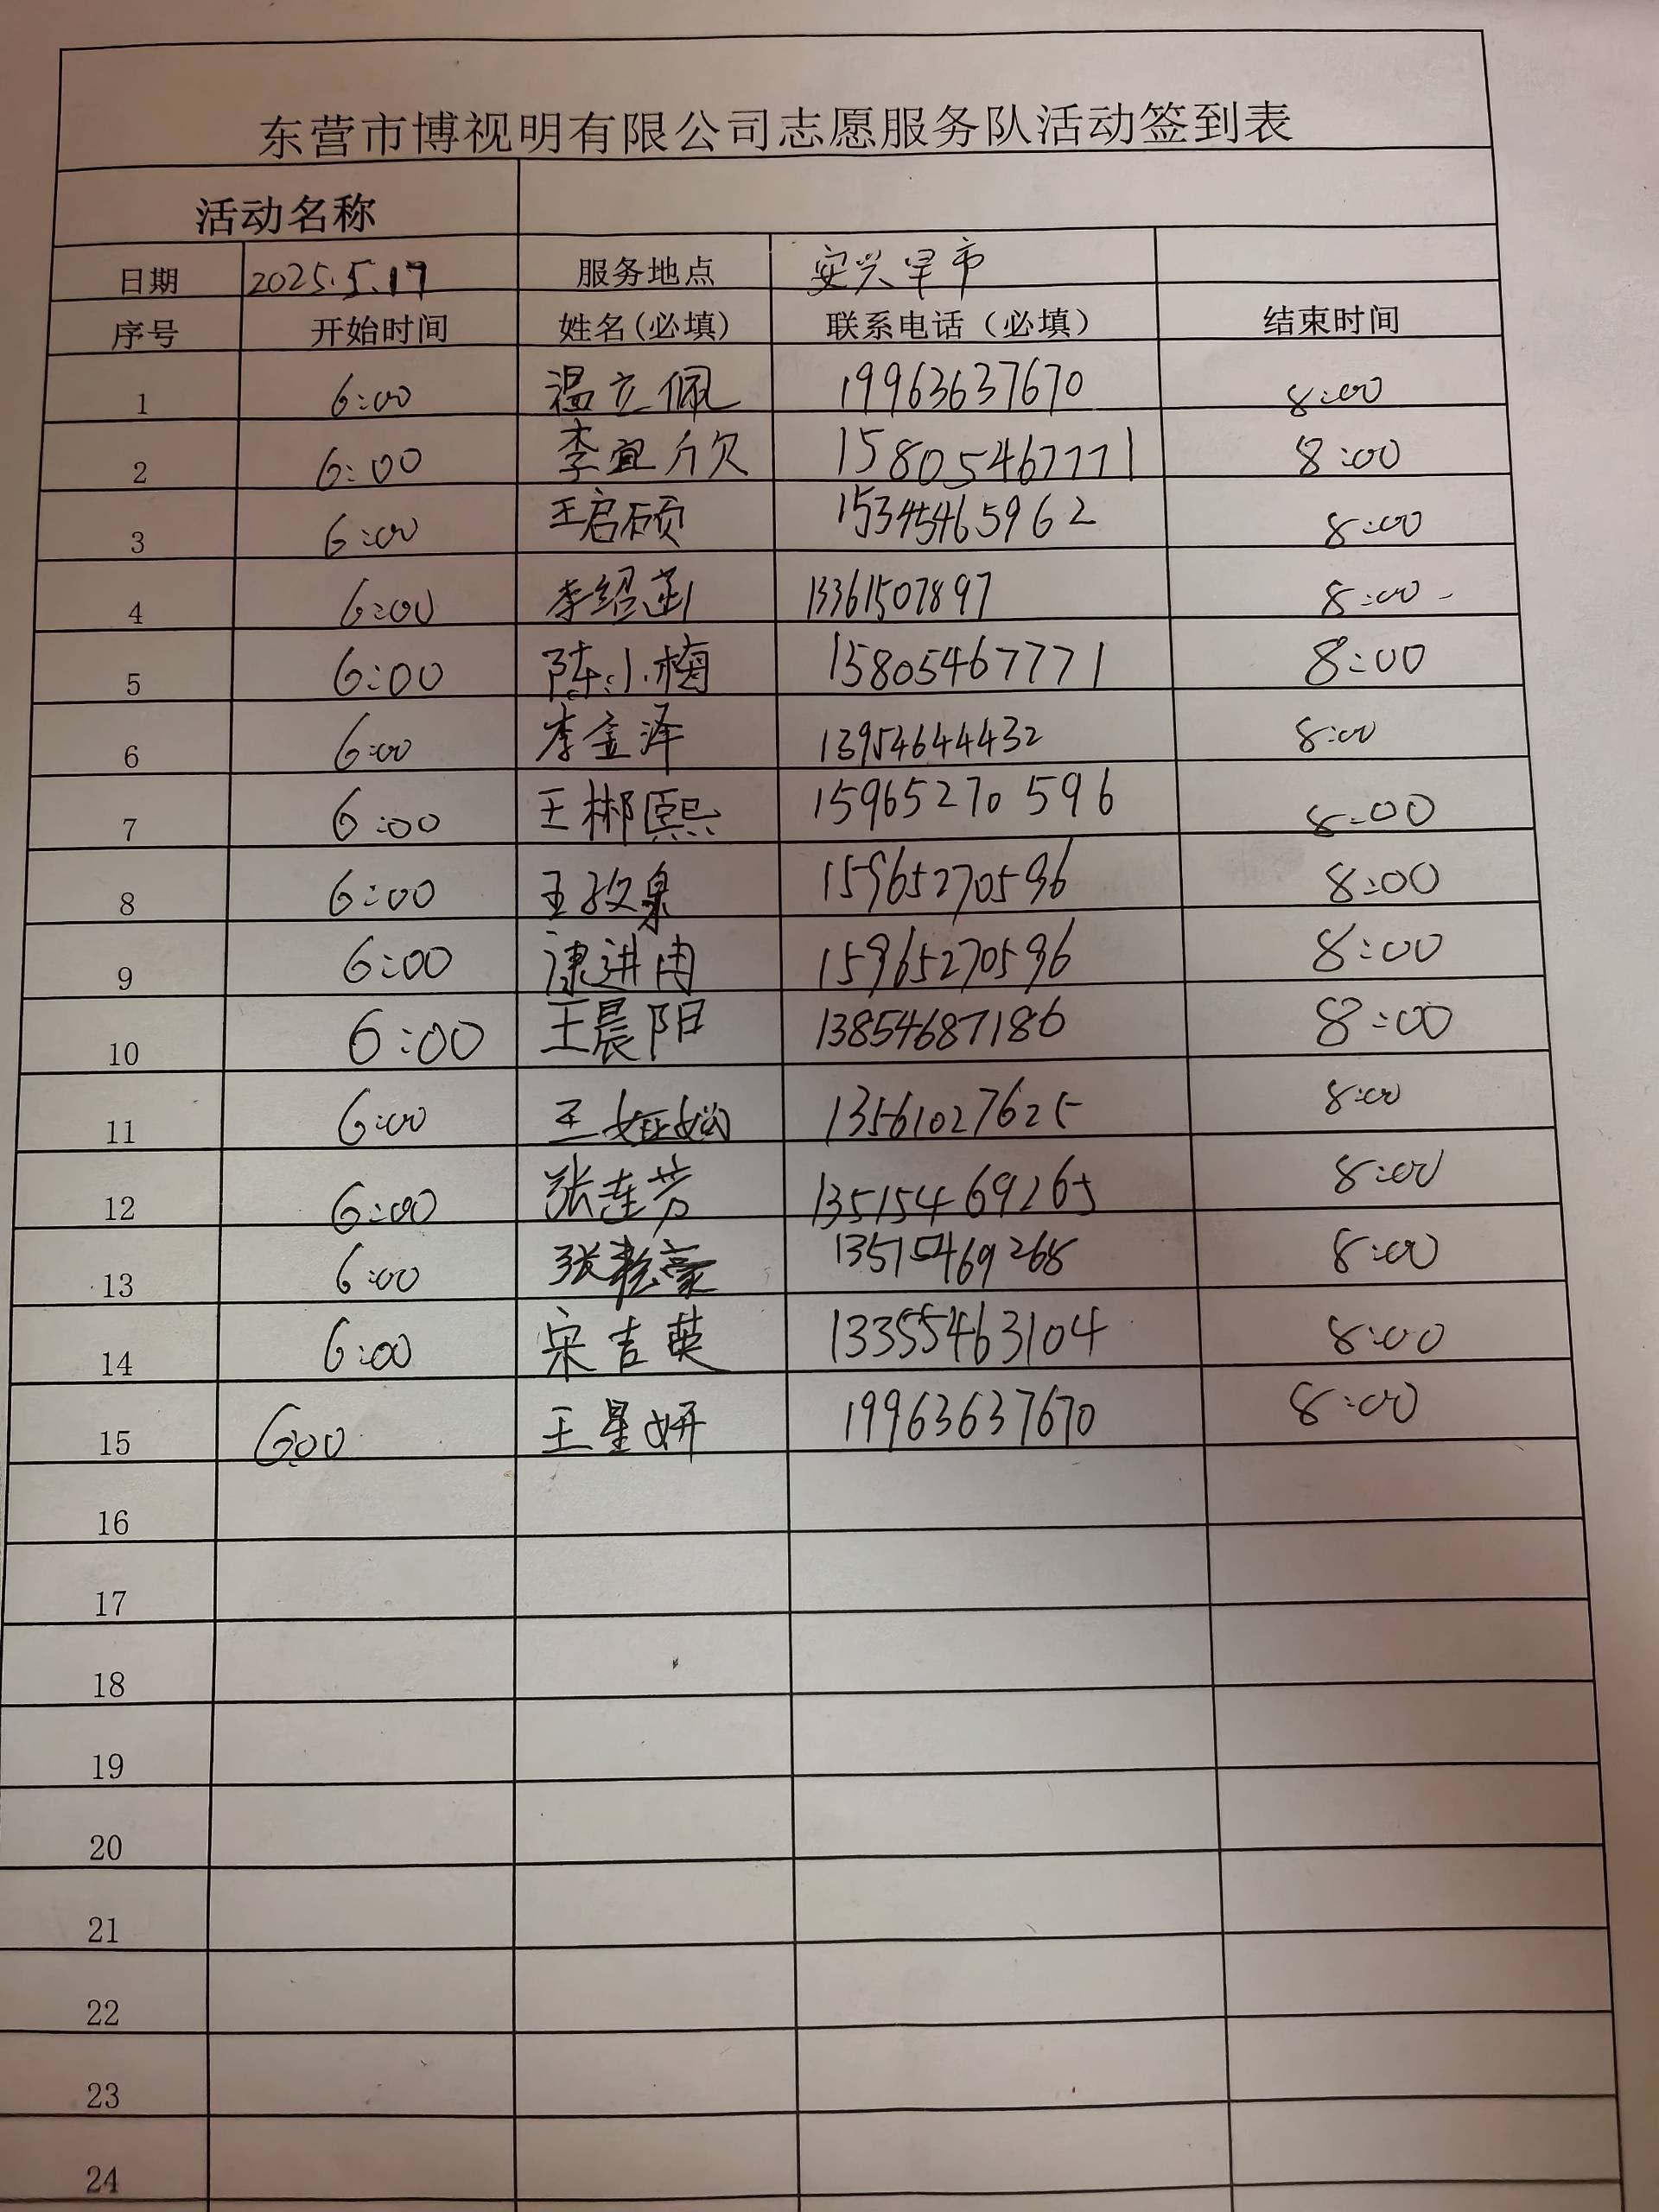 东营市博视明有限公司志愿服务队活动签到表
活动名称
日期 2025.5.17 服务地点 安兴早市
序号 开始时间 姓名(必填) 联系电话（必填） 结束时间
1 6:00 温立佩 19963637670 8:00
2 6:00 李宜欣 15805467771 8:00
3 6:00 王启硕 15345465962 8:00
4 6:00 李绍菡 13361507897 8:00
5 6:00 陈小梅 15805467771 8:00
6 6:00 李金泽 13954644432 8:00
7 6:00 王郴熙 15965270596 8:00
8 6:00 王 15965270596 8:00
9 6:00 康进冉 15965270596 8:00
10 6:00 王晨阳 13854687186 8:00
11 6:00 王 13561027625 8:00
12 6:00 张连芳 13515469265 8:00
13 6:00 张 13515469268 8:00
14 6:00 宋吉英 13355463104 8:00
15 6:00 王星妍 19963637670 8:00
16
17
18
19
20
21
22
23
24